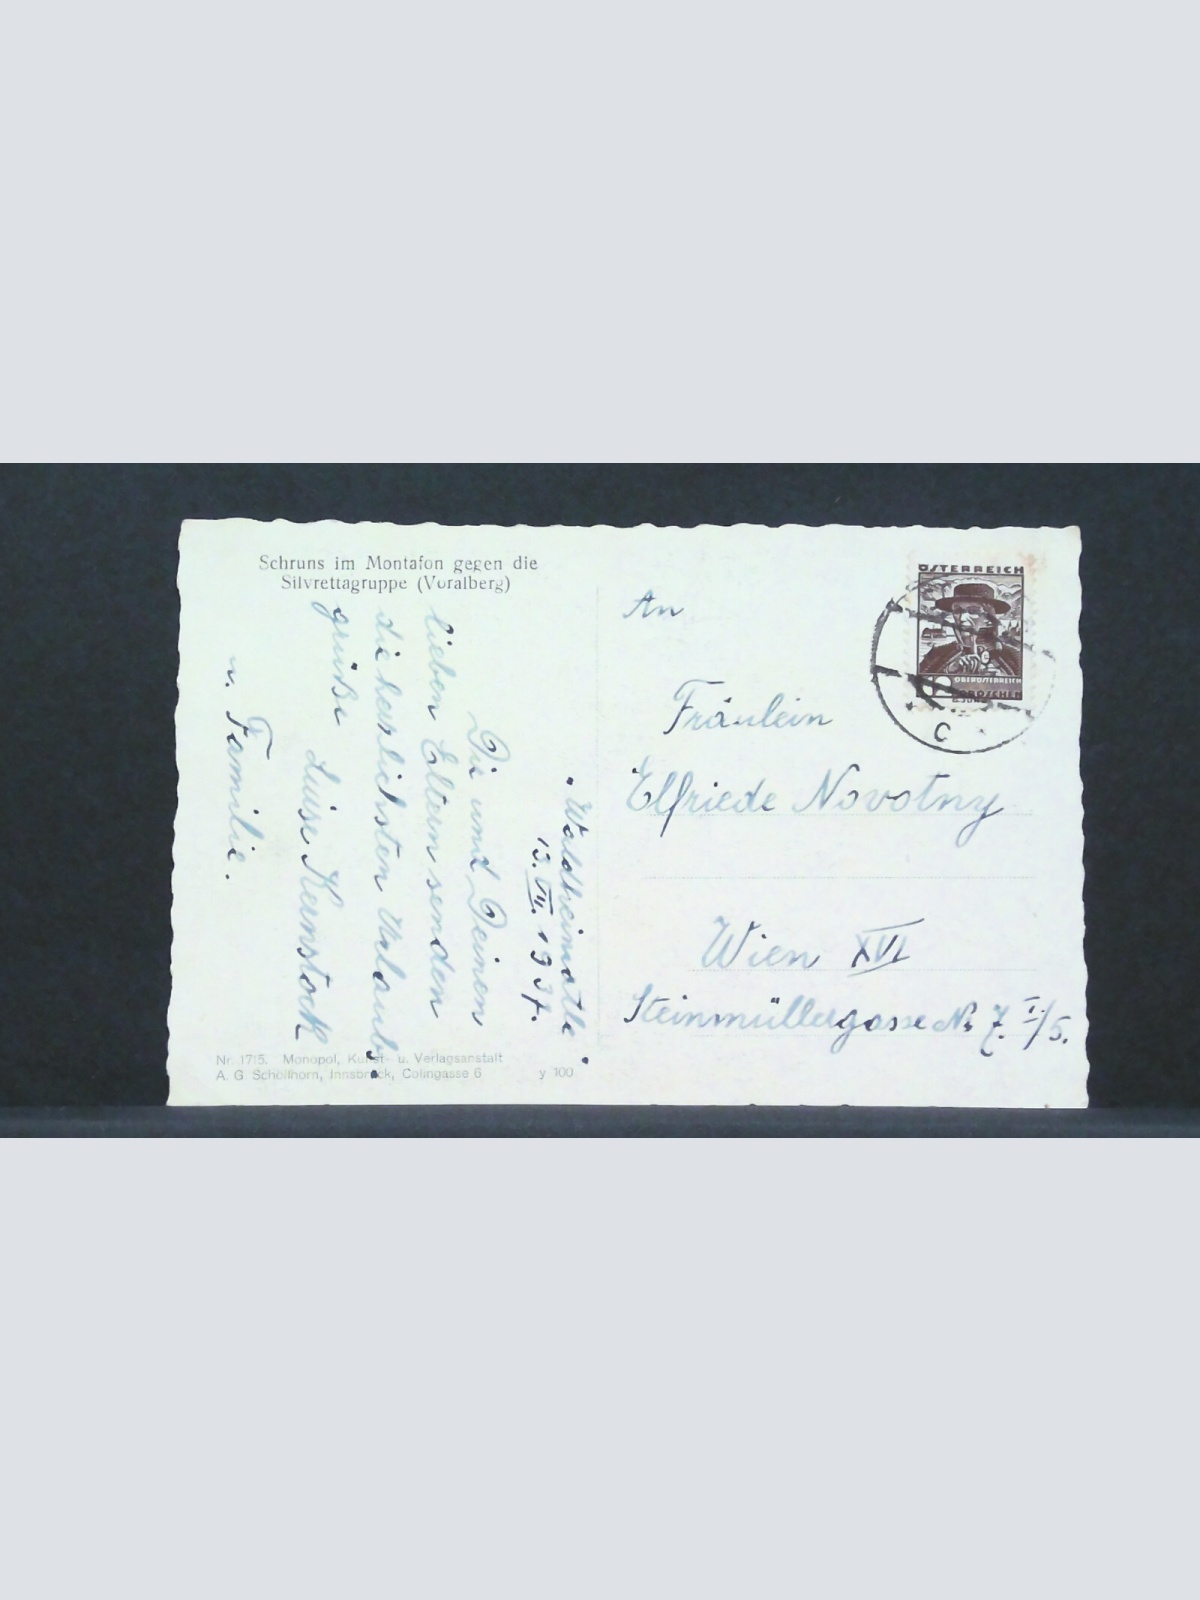 Schruns im Montafon gegen die
Silvrettagruppe (Voralberg)
"Waldheimatle"
13.VII.1937.
Dir und Deinen
lieben Eltern senden
die herzlichsten Urlaubs
grüße
Luise Kernstock
u. Familie.
Nr. 1715. Monopol, Kunst- u. Verlagsanstalt
A. G. Schöllhorn, Innsbruck, Colingasse 6
y 100
An
Fräulein
Elfriede Novotny
Wien XVI
Steinmüllergasse Nr. 7. I./5.
ÖSTERREICH
OBERÖSTERREICH
GROSCHEN
C